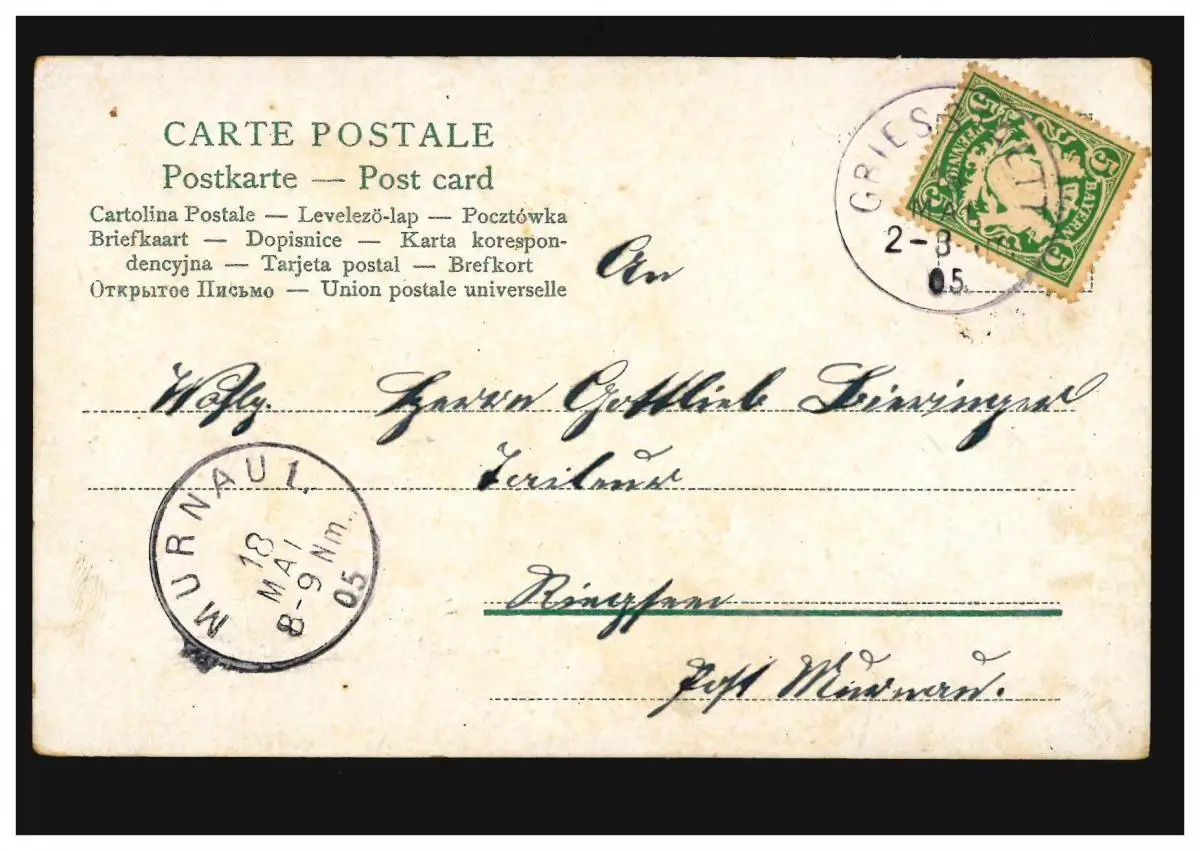 CARTE POSTALE
Postkarte — Post card
Cartolina Postale — Levelezö-lap — Pocztówka
Briefkaart — Dopisnice — Karta korespon-
dencyjna — Tarjeta postal — Brefkort
Открытое Письмо — Union postale universelle
GRIES ETT
MAI
2-3
05
5 5 5 5
BAYERN
An
Wohlg. Herrn Gottlieb Bieringer
MURNAU 1.
18
MAI
8-9 Nm.
05
Post Murnau.